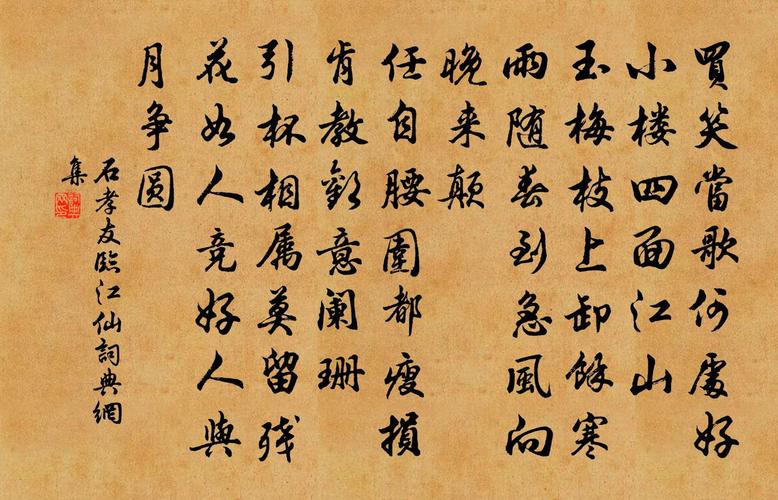 買笑當歌何處好
小楼四面江山
玉梅枝上卸餘寒
雨随春到急風向
晚来颠
任自腰圍都瘦損
肯教歡意阑珊
引杯相属莫留残
花如人竞好人與
月争圆
石孝友臨江仙詞典網
集